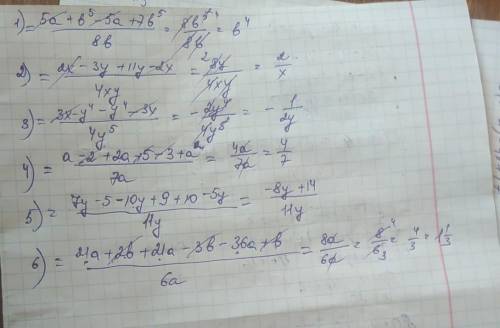 1) = (5a + b⁵ - 5a + 7b⁵)/8b = 8b⁵/8b = b⁴
2) = (2x - 3y + 11y - 2x)/4xy = 8y/4xy = 2/x
3) = (3x - y⁴ - y⁴ - 3x)/4y⁵ = - 2y⁴/4y⁵ = - 1/2y
4) = (a - 2 + 2a - 5 - 3 + a²)/7a = 4a/7a = 4/7
5) = (7y - 5 - 10y + 9 + 10 - 5y)/11y = (-8y + 14)/11y
6) = (21a + 2b + 21a - 3b - 36a + b)/6a = 8a/6a = 8/6 = 4/3 = 1 1/3